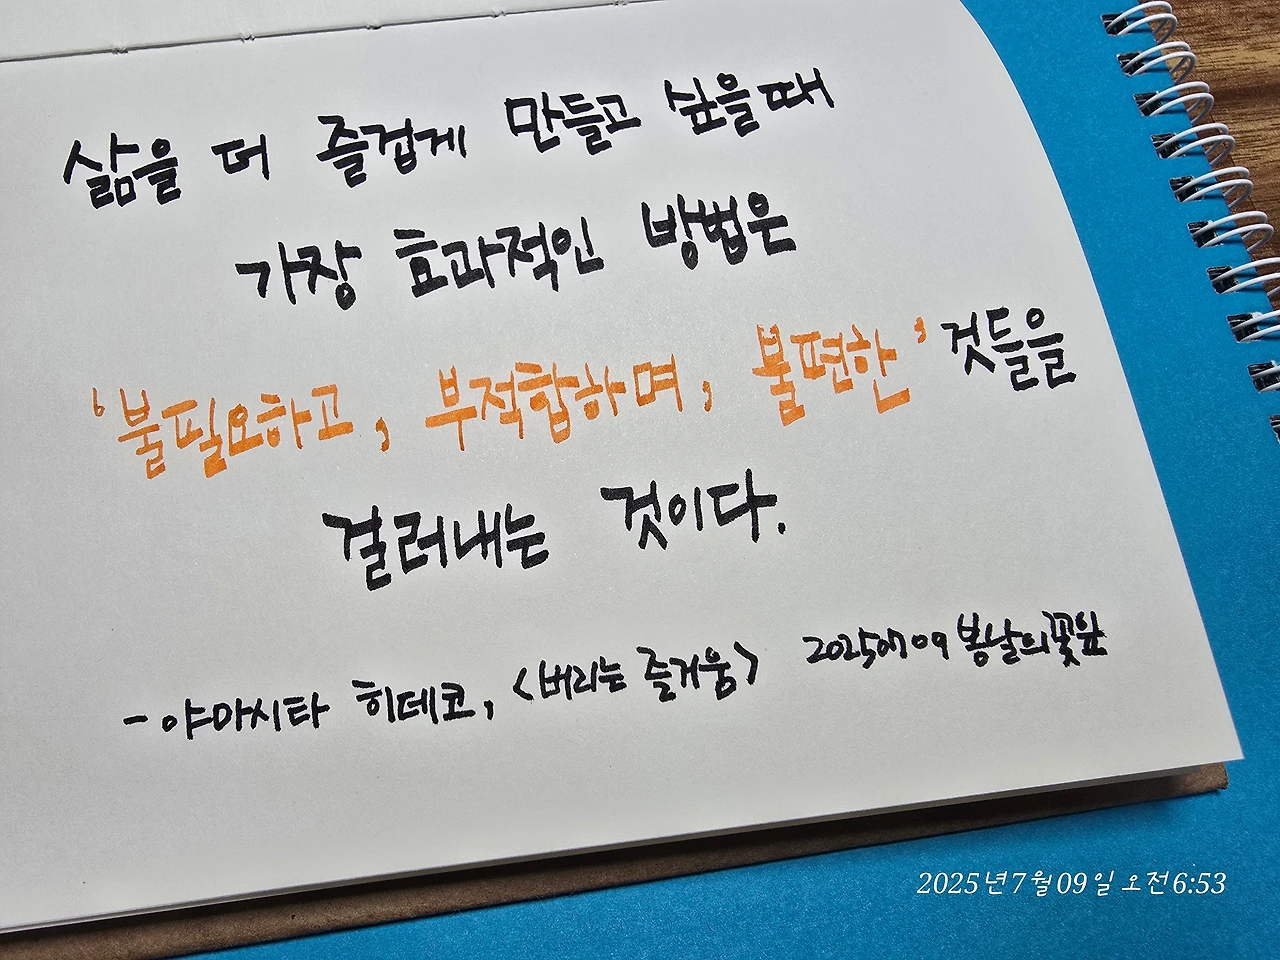 삶을 더 즐겁게 만들고 싶을때
가장 효과적인 방법은
'불필요하고, 부적합하며, 불편한' 것들을
걸러내는 것이다.
- 야마시타 히데코, <버리는 즐거움> 20250709 봄날의꽃잎
2025년7월09일 오전6:53